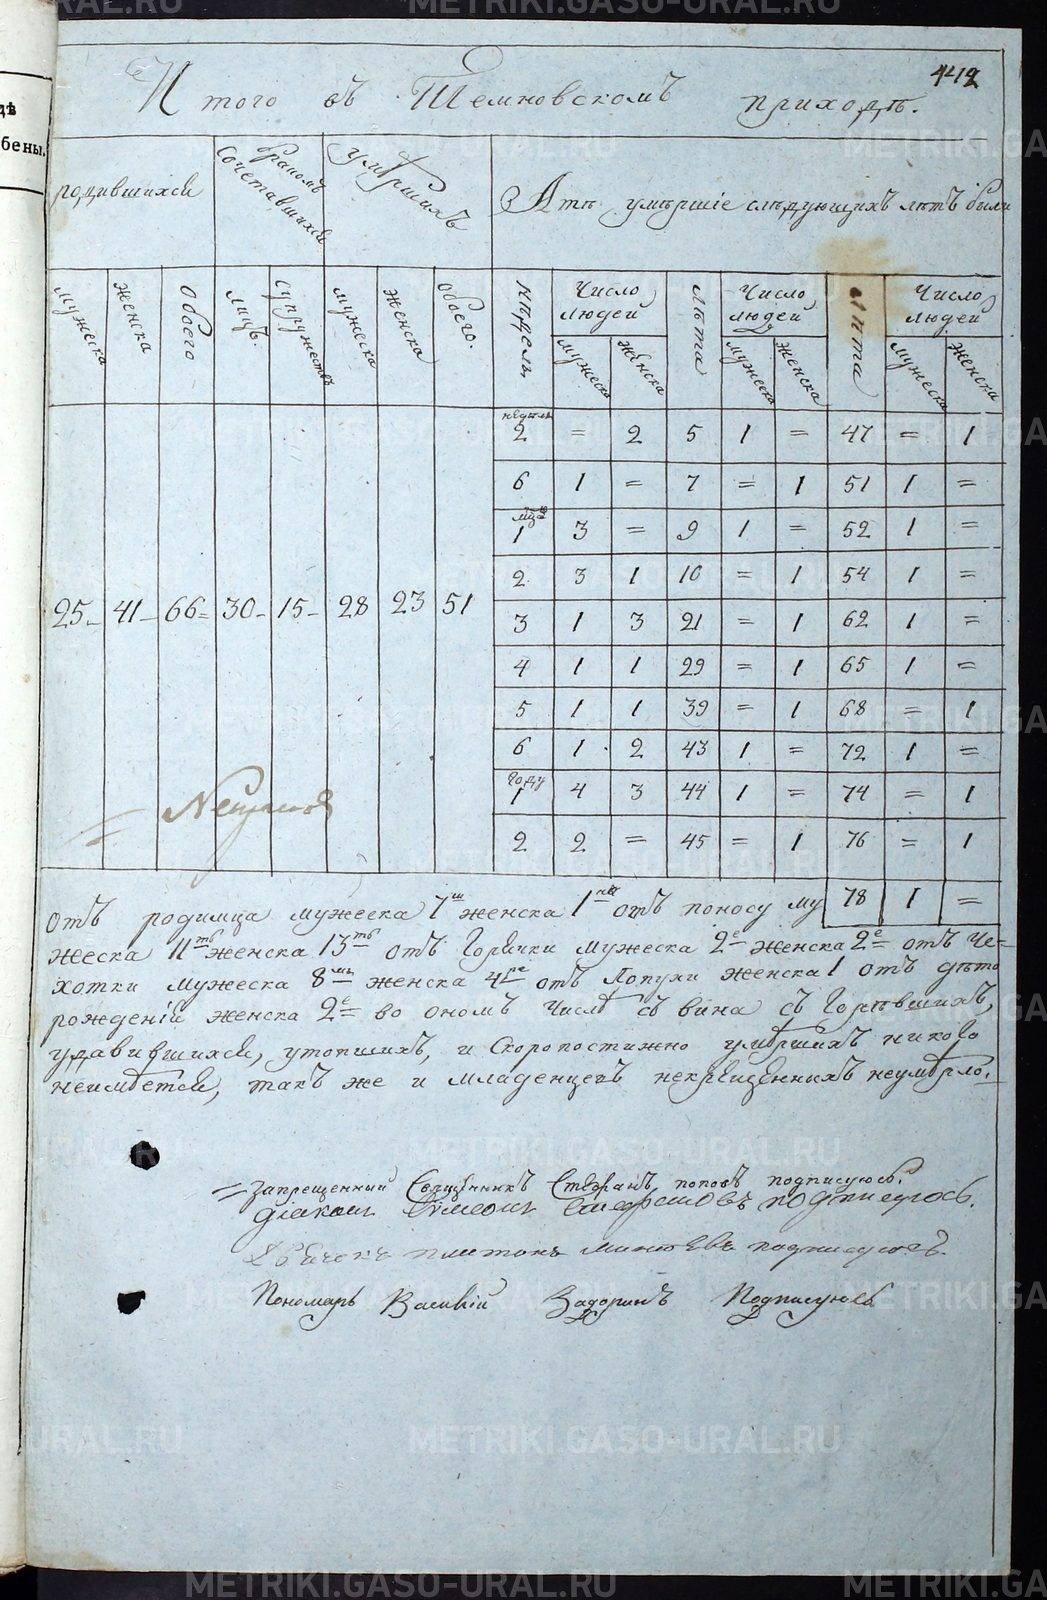 442
Итого въ Темновскомъ приходѣ.
дѣ
бены.
родившихся
бракомъ сочетавшихся
умѣршихъ
А тѣ умѣршіе слѣдующихъ лѣтъ были
мужеска женска обоего лицъ. супружествъ мужеска женска обоего. недѣли Число людей лѣта Число людей лѣта Число людей
мужеска женска мужеска женска мужеска женска
недѣли
2 = 2 5 1 = 47 = 1
6 1 = 7 = 1 51 1 =
1 3 = 9 1 = 52 1 =
2 3 1 10 = 1 54 1 =
25 41 66 30 15 28 23 51
3 1 3 21 = 1 62 1 =
4 1 1 29 = 1 65 1 =
5 1 1 39 = 1 68 = 1
6 1 2 43 1 = 72 1 =
году
1 4 3 44 1 = 74 = 1
2 2 = 45 = 1 76 = 1
78 1 =
отъ родимца мужеска 7 женска 1 отъ поносу му
жеска 11 женска 13 отъ Горячки мужеска 2е женска 2е отъ Че=
хотки мужеска 8 женска 4 отъ Лопухи женска 1 отъ дѣто
рожденій женска 2е во ономъ числѣ съ вина съ Горѣвшихъ,
удавившихся, утопшихъ, и скоропостижно умѣршихъ никого
неимѣется, такъ же и младенцевъ некрещенныхъ неумѣрло.
запрещенный Священникъ Стефанъ Поповъ подписуюсь.
диакон Симеон подписуюсь.
Платонъ подписуюсь.
Пономарь Василій Задоринъ Подписуюсь
METRIKI.GASO-URAL.RU